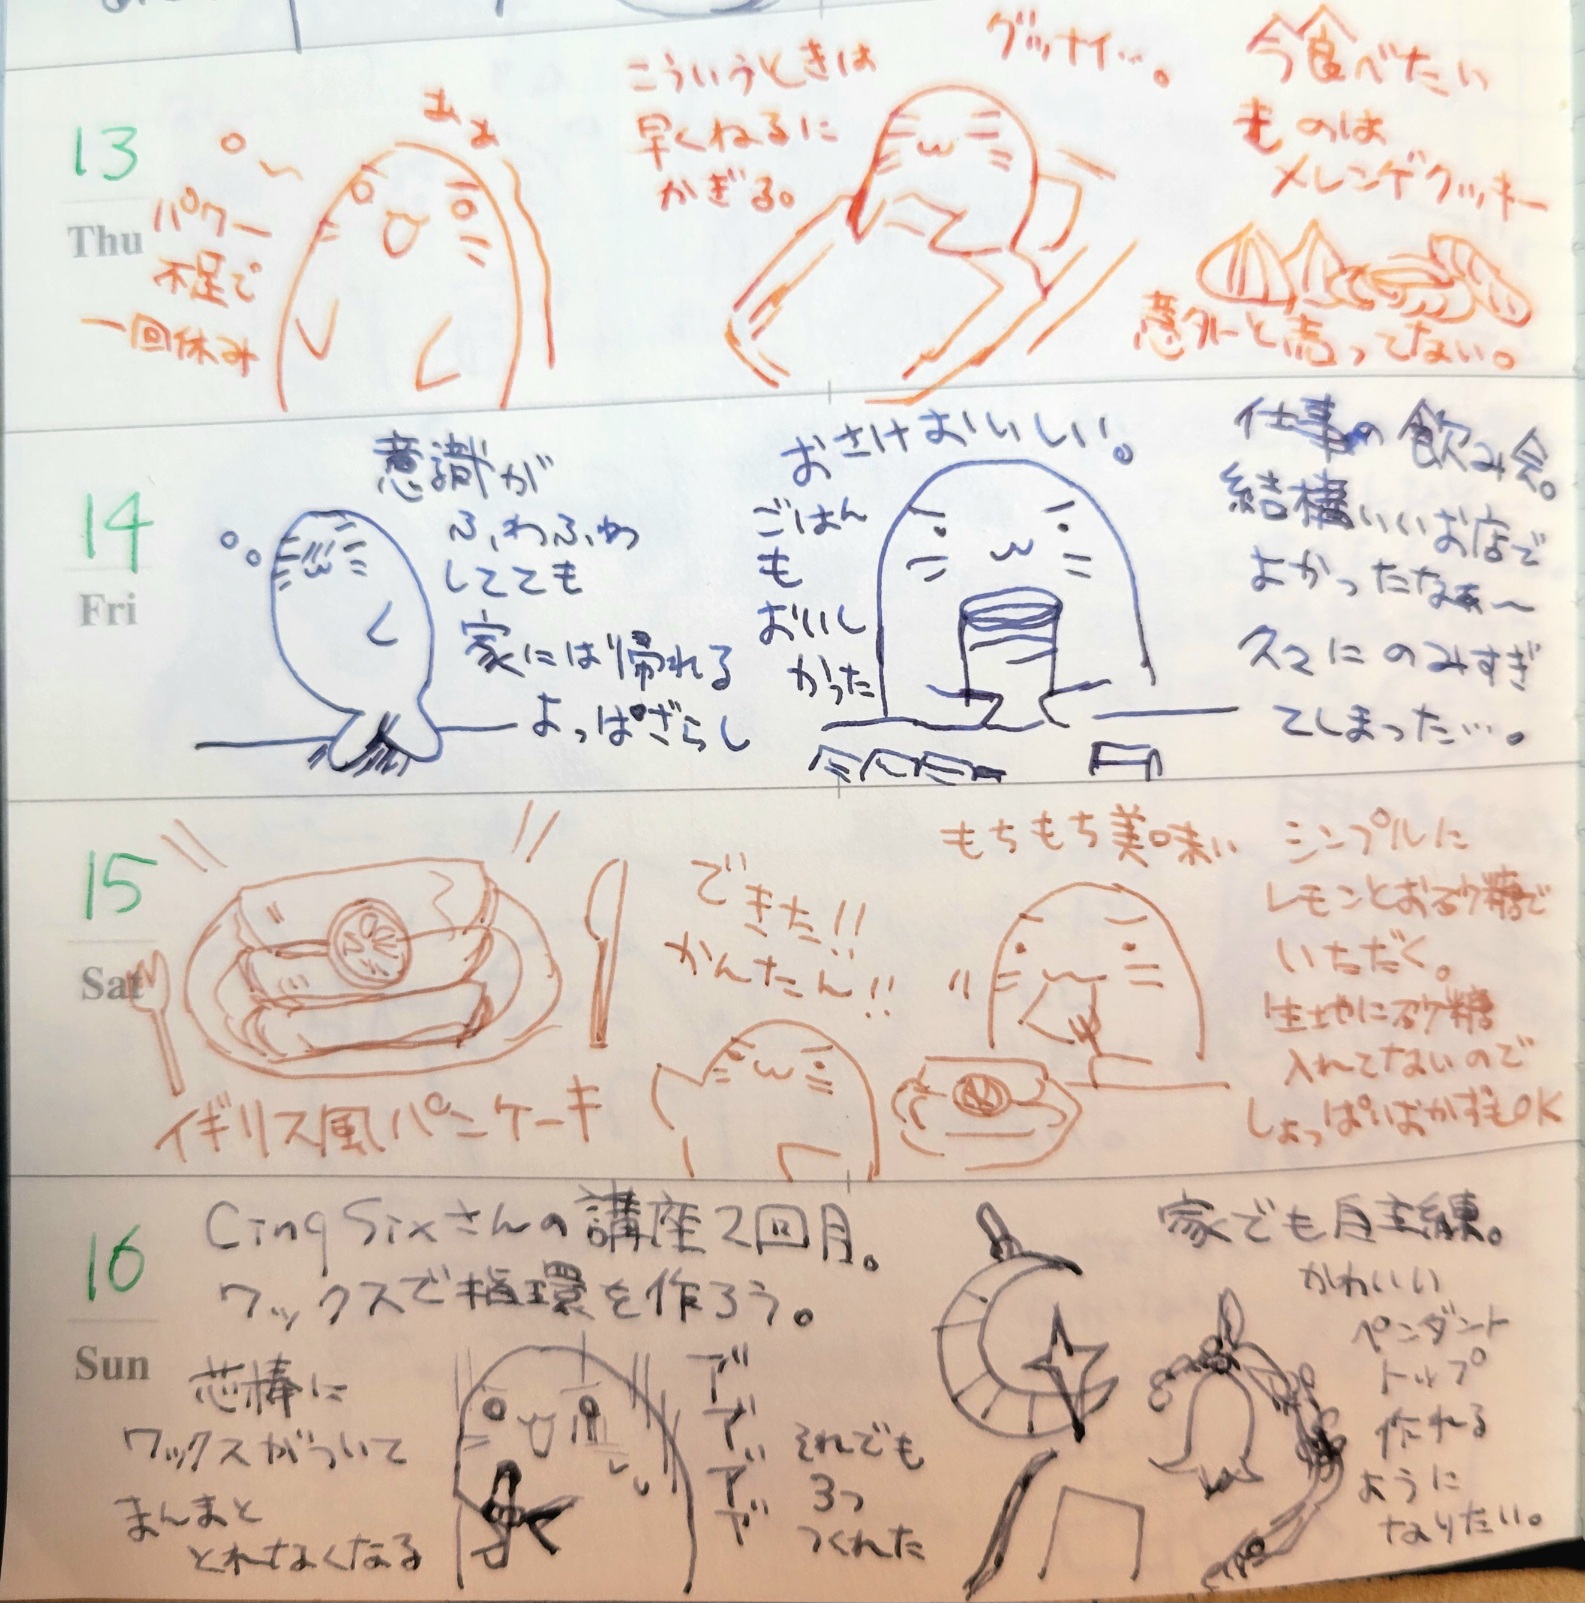 13
Thu
パワー
不足で
一回休み
こういうときは
早くねるに
かぎる。
グッナイ…。
今食べたい
ものは
メレンゲクッキー
意外と売ってない。
14
Fri
意識が
ふわふわ
してても
家には帰れる
よっぱざらし
おさけおいしい。
ごはん
も
おいし
かった
仕事の飲み会。
結構いいお店で
よかったなぁ〜
久々にのみすぎ
てしまった…。
15
Sat
イギリス風パンケーキ
できた!!
かんたん!!
もちもち美味い
シンプルに
レモンとお砂糖で
いただく。
生地に砂糖
入れてないので
しょっぱいおかずもOK
16
Sun
Cinq Sixさんの講座2回目。
ワックスで指環を作ろう。
芯棒に
ワックスがついて
まんまと
とれなくなる
それでも
3つ
つくれた
家でも自主練。
かわいい
ペンダント
トップ
作れる
ように
なりたい。